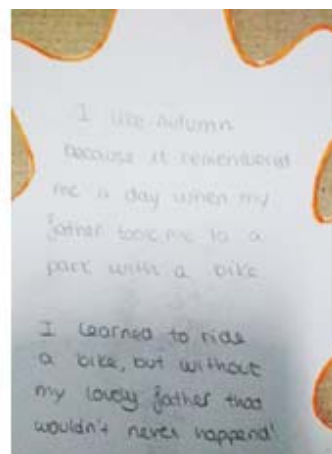 I like Autumn
because it remembered
me a day when my
father took me to a
park with a bike
I learned to ride
a bike, but without
my lovely father that
wouldn't never happend!